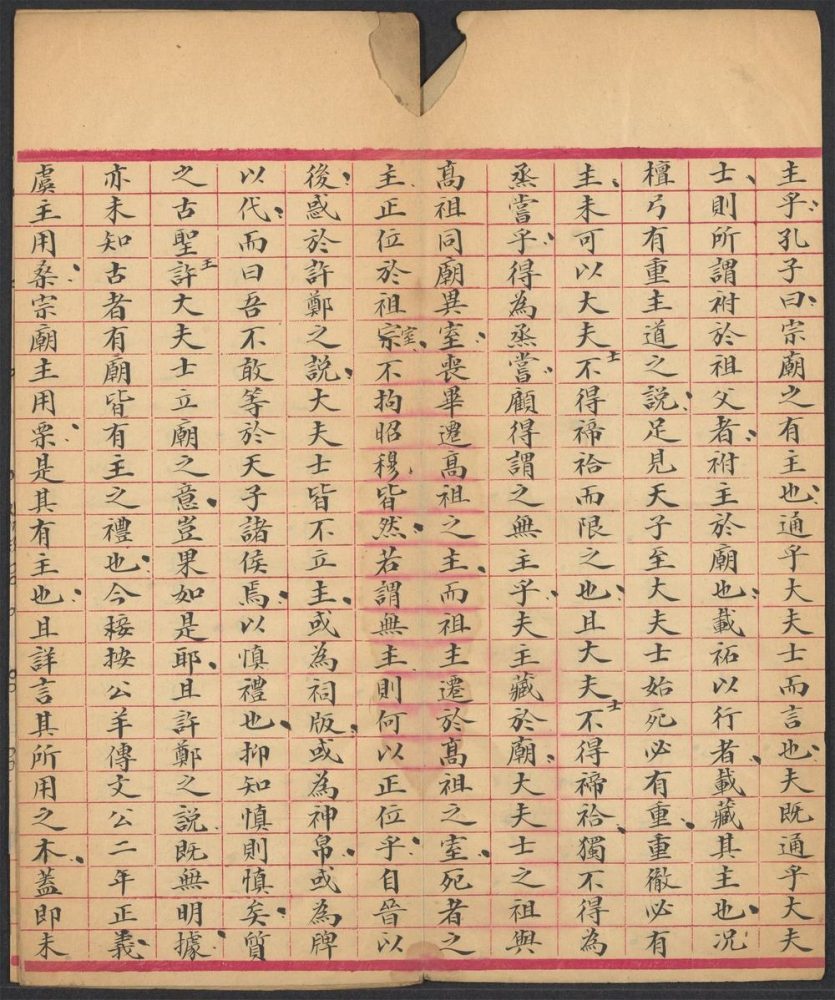 主乎孔子曰宗廟之有主也通乎大夫士而言也夫既通乎大夫
士則所謂祔於祖父者祔主於廟也載祏以行者載藏其主也況
檀弓有重主道之説足見天子至大夫士始死必有重重徹必有
主未可以大夫士不得禘祫而限之也且大夫士不得禘祫獨不得為
烝嘗乎得為烝嘗顧得謂之無主乎夫主藏於廟大夫士之祖與
高祖同廟異室喪畢遷高祖之主而祖主遷於高祖之室死者之
主正位於祖宗室不拘昭穆皆然若謂無主則何以正位乎自晉以
後惑於許鄭之説大夫士皆不立主或為祠版或為神帛或為牌
以代而曰吾不敢等於天子諸侯焉以慎禮也抑知慎則慎矣質
之古聖王許大夫士立廟之意豈果如是耶且許鄭之説既無明據
亦未知古者有廟皆有主之禮也今接按公羊傳文公二年正義
虞主用桑宗廟主用栗是其有主也且詳言其所用之木蓋即未